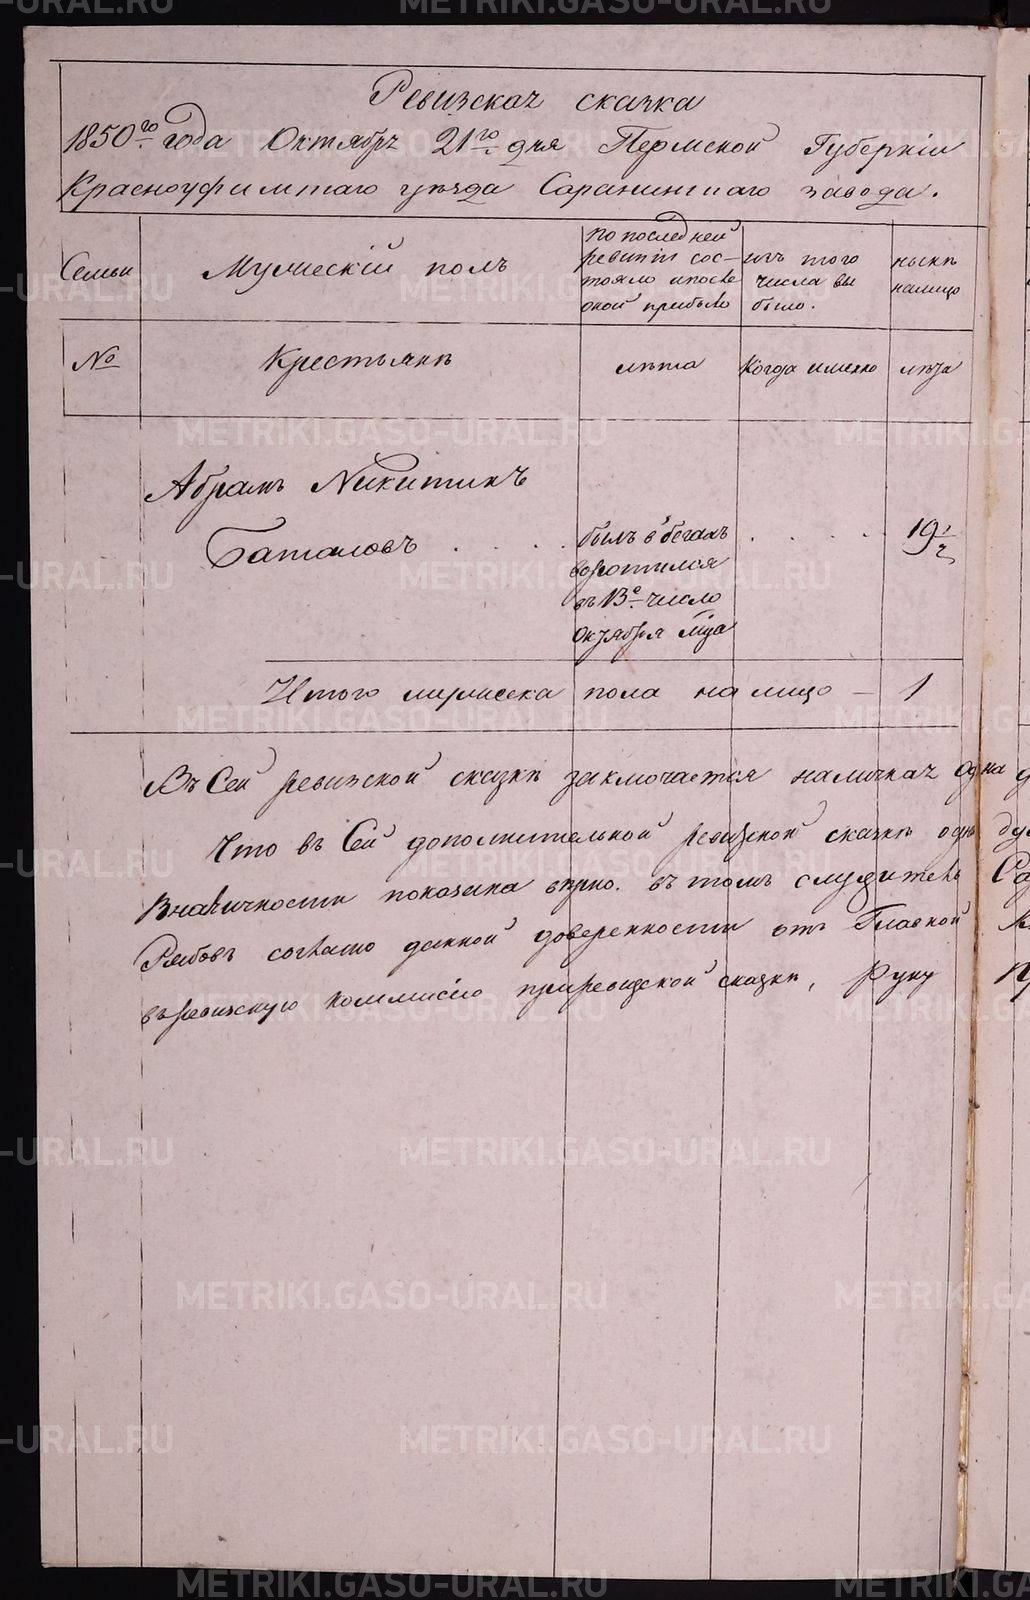 Ревизская сказка
1850го года Октября 21го дня Пермской Губернiи
Красноуфимскаго уѣзда Саранинскаго завода.
Семьи
Мужескiй полъ
по последней
ревизiи сос-
тояло и после
оной прибыло
изъ того
числа вы
было.
нынѣ
налицо
№
Крестьянѣ
лѣта
Когда именно
лѣта
Абрамъ Никитинъ
Баталовъ . . . .
былъ в бегахъ
воротился
въ 13е число
Октября мца
. . . .
19 1/2
Итого мужеска пола налицо — 1
Въ Сей ревизской сказкѣ заключается наличная одна
Что въ Сей дополнительной ревизской сказкѣ одна
Вналичности показана вѣрно. въ томъ служитель
Рябовъ согласно данной доверенности отъ Главной
въ ревизскую коммисiю приревизской сказки, Руку
METRIKI.GASO-URAL.RU